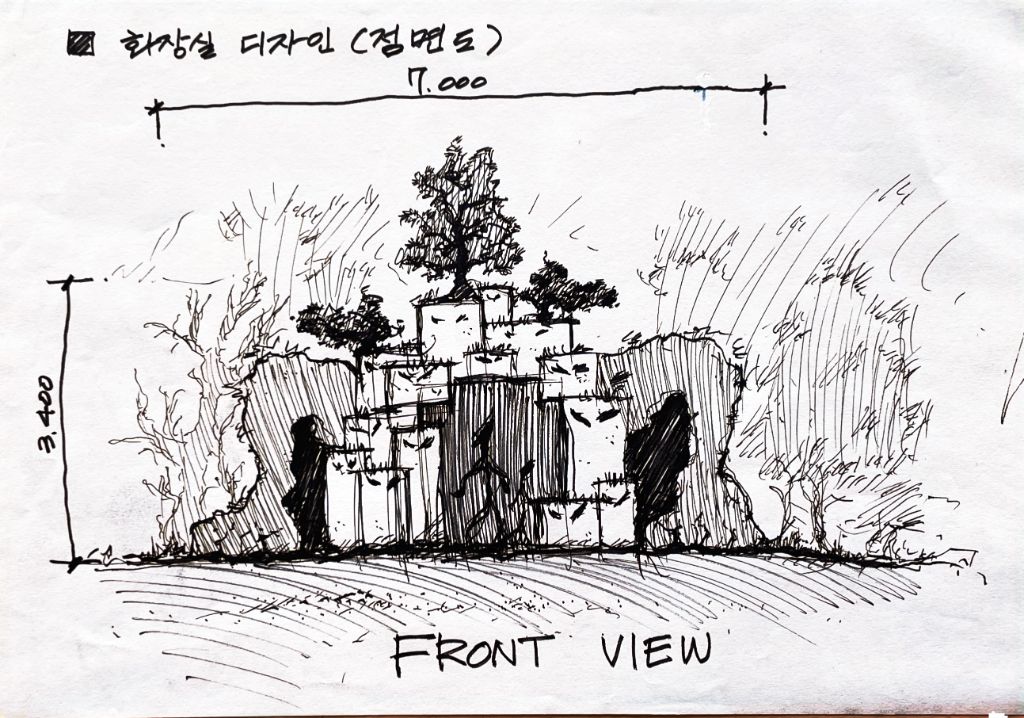 ■ 화장실 디자인 (정면도)
7.000
3.400
FRONT VIEW